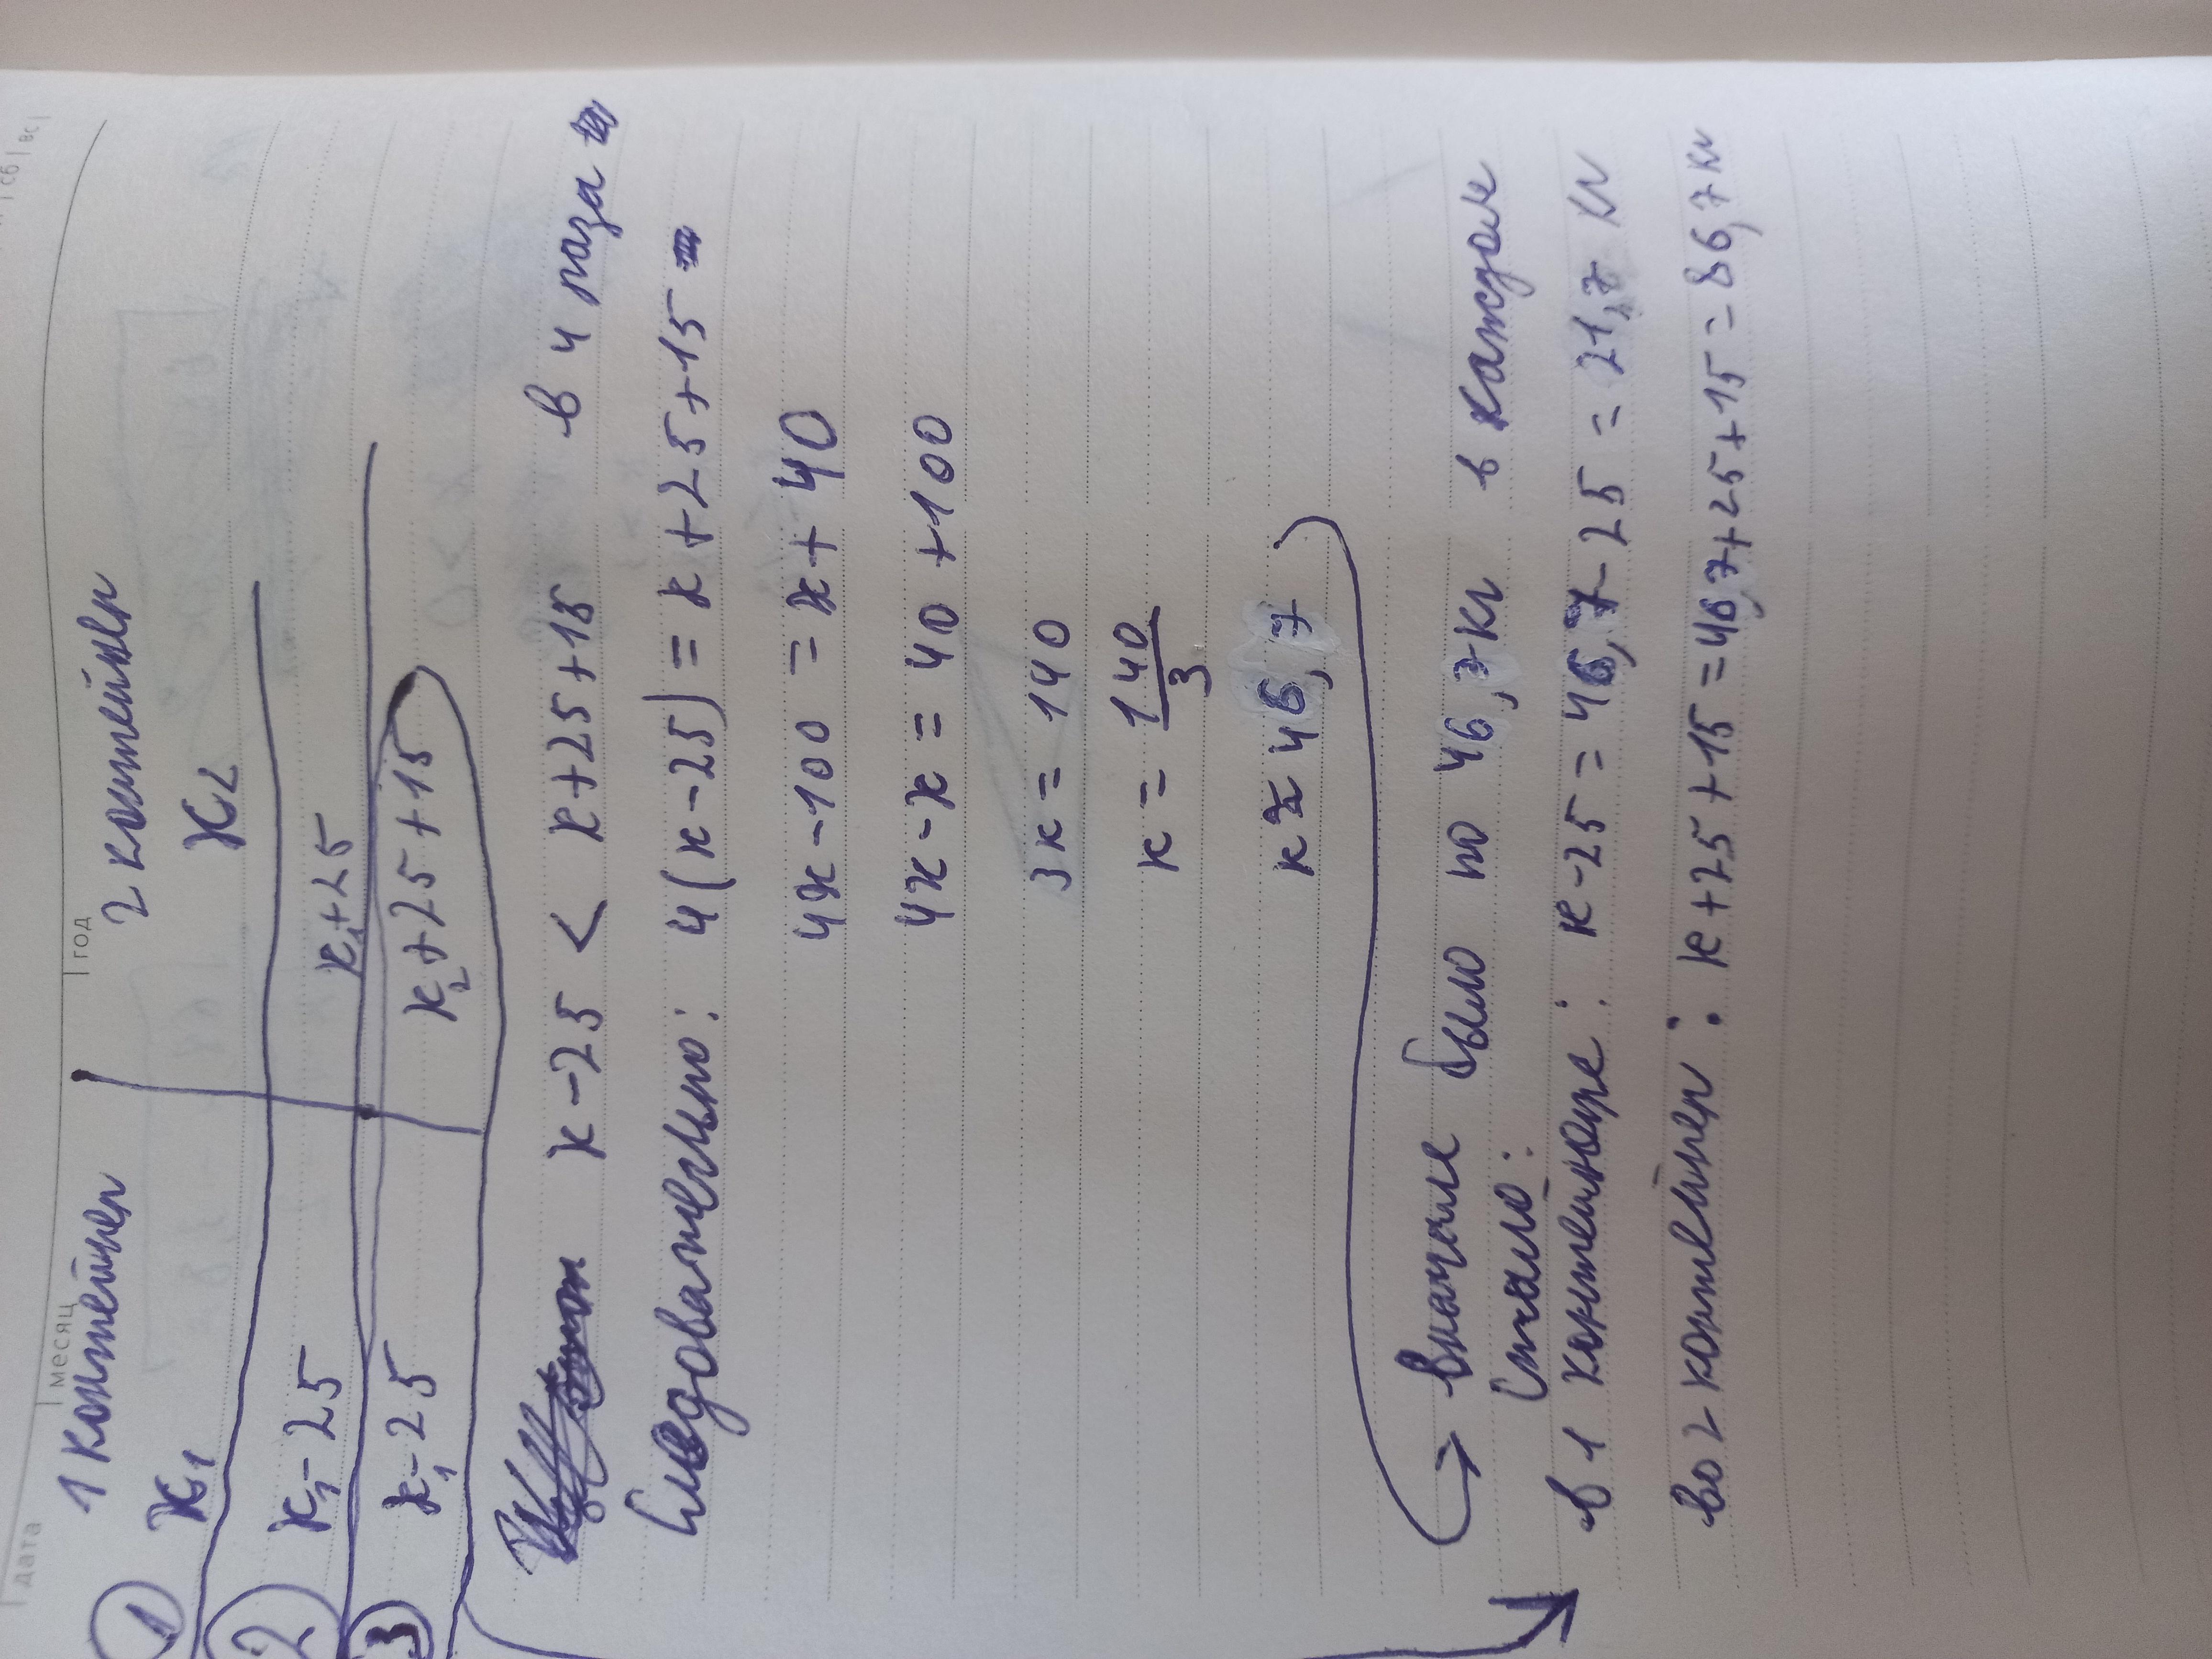 дата месяц год сб вс
1 контейнер 2 контейнер
① x₁ x₂
② x₁-25 x₁+25
③ x₁-25 x₂+25+15
x-25 < x+25+15 в 4 раза
Следовательно: 4(x-25) = x+25+15
4x-100 = x+40
4x-x = 40+100
3x = 140
x = 140/3
x ≈ 46,7
→ вначале было по 46,7 кг в каждом
Стало:
в 1 контейнере: x-25 = 46,7-25 = 21,7 кг
во 2 контейнер: x+25+15 = 46,7+25+15 = 86,7 кг